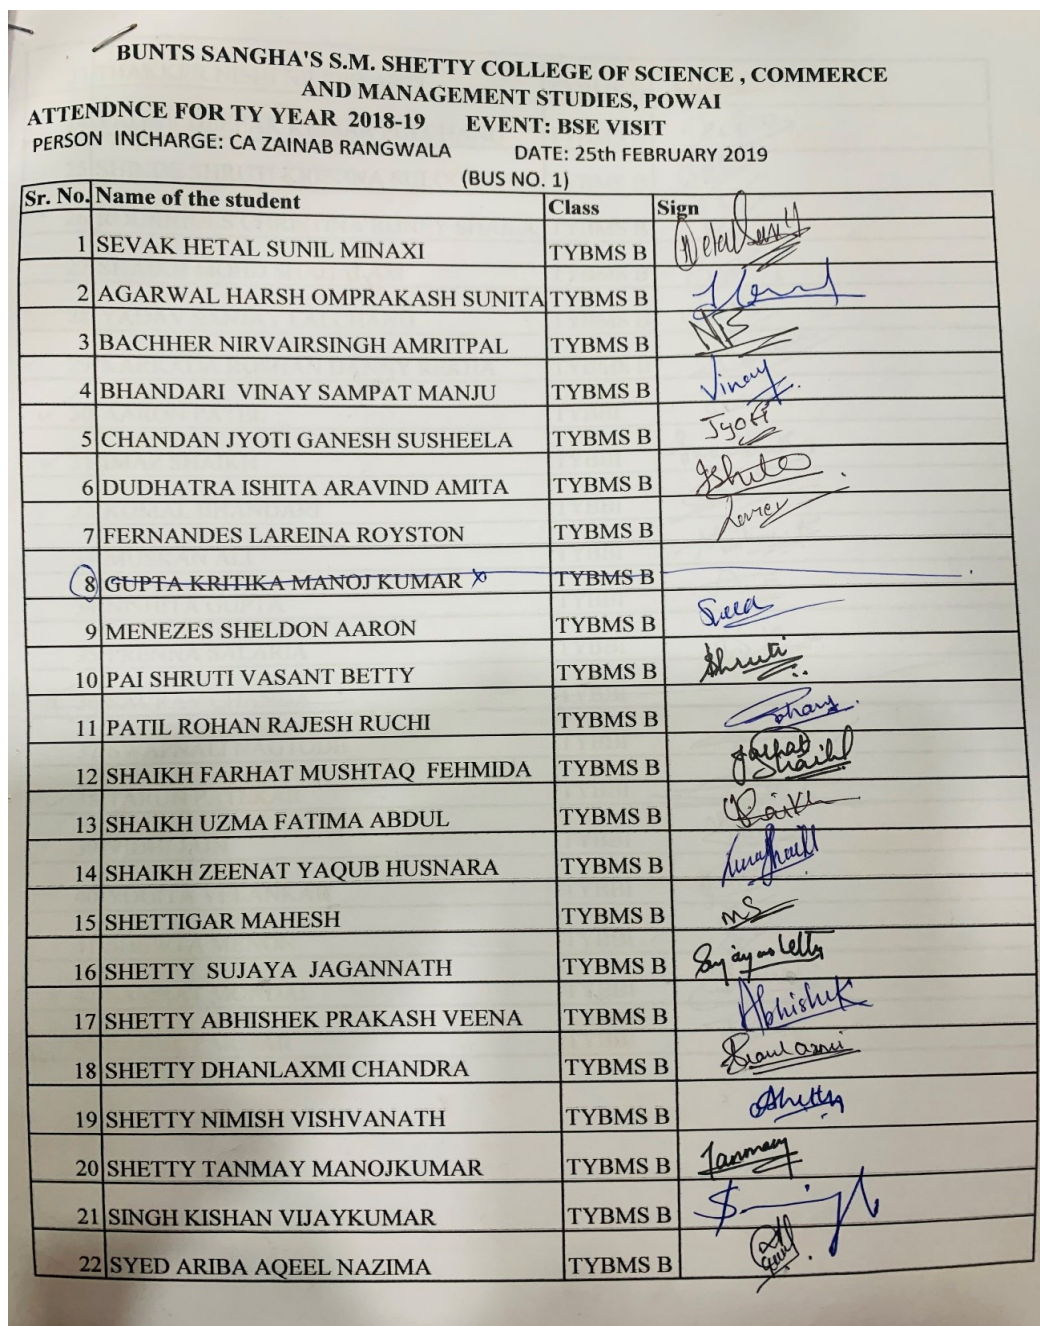 BUNTS SANGHA'S S.M. SHETTY COLLEGE OF SCIENCE , COMMERCE
AND MANAGEMENT STUDIES, POWAI
ATTENDNCE FOR TY YEAR 2018-19 EVENT: BSE VISIT
PERSON INCHARGE: CA ZAINAB RANGWALA DATE: 25th FEBRUARY 2019
(BUS NO. 1)
Sr. No. Name of the student Class Sign
1 SEVAK HETAL SUNIL MINAXI TYBMS B
2 AGARWAL HARSH OMPRAKASH SUNITA TYBMS B
3 BACHHER NIRVAIRSINGH AMRITPAL TYBMS B
4 BHANDARI VINAY SAMPAT MANJU TYBMS B Vinay
5 CHANDAN JYOTI GANESH SUSHEELA TYBMS B Jyoti
6 DUDHATRA ISHITA ARAVIND AMITA TYBMS B Ishita
7 FERNANDES LAREINA ROYSTON TYBMS B
8 GUPTA KRITIKA MANOJ KUMAR TYBMS B
9 MENEZES SHELDON AARON TYBMS B
10 PAI SHRUTI VASANT BETTY TYBMS B Shruti
11 PATIL ROHAN RAJESH RUCHI TYBMS B
12 SHAIKH FARHAT MUSHTAQ FEHMIDA TYBMS B Farhat Shaikh
13 SHAIKH UZMA FATIMA ABDUL TYBMS B
14 SHAIKH ZEENAT YAQUB HUSNARA TYBMS B
15 SHETTIGAR MAHESH TYBMS B MS
16 SHETTY SUJAYA JAGANNATH TYBMS B
17 SHETTY ABHISHEK PRAKASH VEENA TYBMS B Abhishek
18 SHETTY DHANLAXMI CHANDRA TYBMS B
19 SHETTY NIMISH VISHVANATH TYBMS B
20 SHETTY TANMAY MANOJKUMAR TYBMS B Tanmay
21 SINGH KISHAN VIJAYKUMAR TYBMS B
22 SYED ARIBA AQEEL NAZIMA TYBMS B